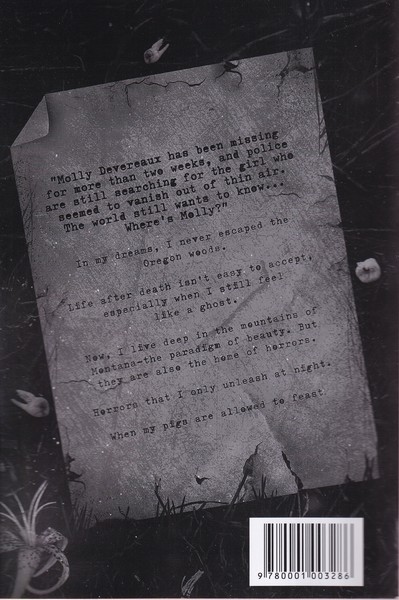 "Molly Devereaux has been missing
for more than two weeks, and police
are still searching for the girl who
seemed to vanish out of thin air.
The world still wants to know...
Where's Molly?"
In my dreams, I never escaped the
Oregon woods.
Life after death isn't easy to accept,
especially when I still feel
like a ghost.
Now, I live deep in the mountains of
Montana—the paradigm of beauty. But
they are also the home of horrors.
Horrors that I only unleash at night.
When my pigs are allowed to feast
9 780001 003286